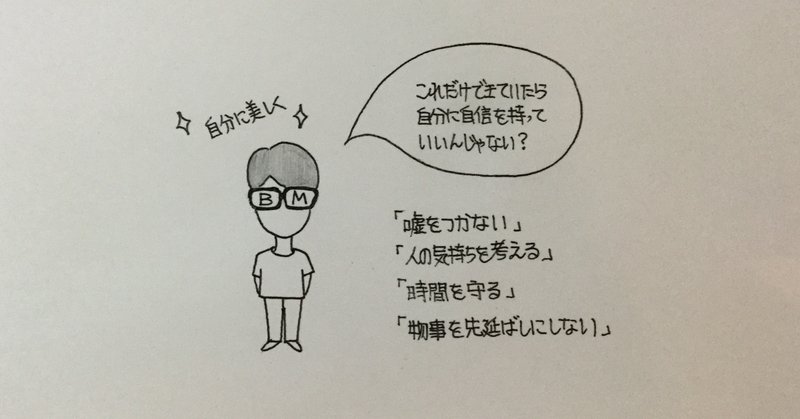 自分に美しく
これだけできていたら
自分に自信を持って
いいんじゃない?
B M
「嘘をつかない」
「人の気持ちを考える」
「時間を守る」
「物事を先延ばしにしない」